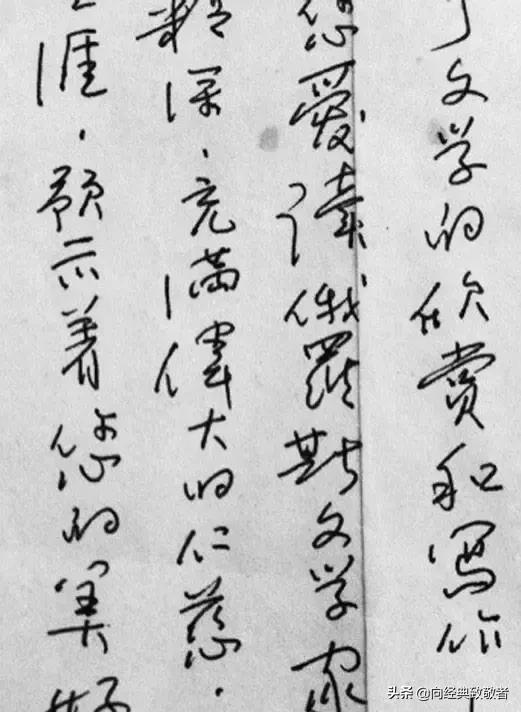 文学的欣赏和寫作
您愛讀俄羅斯文学家
精深，充满偉大的仁慈，
涯，预示着您的美好
头条 @向经典致敬者